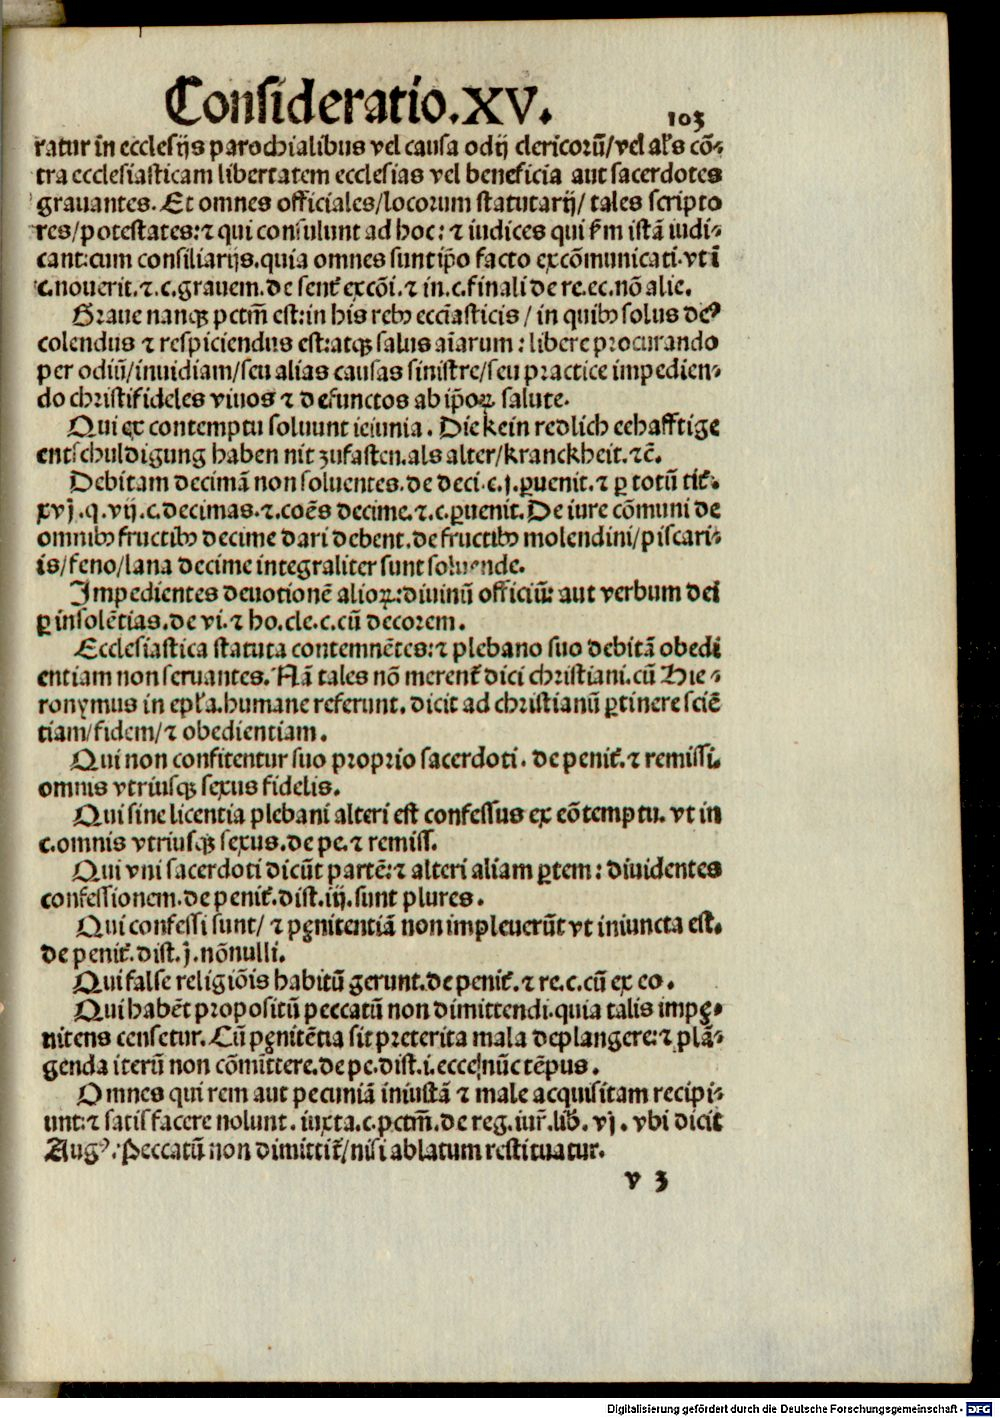 Consideratio.XV.
103
ratur in ecclesijs parochialibus vel causa odij clericorū/vel al's cō-
tra ecclesiasticam libertatem ecclesias vel beneficia aut sacerdotes
grauantes. Et omnes officiales/locorum statutarij/ tales scripto
res/potestates: ⁊ qui consulunt ad hoc: ⁊ iudices qui ẜm istā iudi-
cant:cum consiliarijs.quia omnes sunt ip̄o facto excōmunicati.vt ī
c.nouerit.⁊.c.grauem.de sent̃ excōi.⁊ in.c.finali de re.ec.nō alie.
Graue nanqꝫ pctm̄ est:in his rebꝰ ecc̄iasticis / in quibꝰ solus deꝰ
colendus ⁊ respiciendus est:atqꝫ salus aīarum : libere procurando
per odiū/inuidiam/seu alias causas sinistre/seu practice impedien-
do christifideles viuos ⁊ defunctos ab ip̄oꝝ salute.
Qui ex contemptu soluunt ieiunia. Die kein redlich eehafftige
entschuldigung haben nit zufasten.als alter/kranckheit.⁊c̄.
Debitam decimā non soluentes.de deci.c.j.ꝑuenit.⁊ ꝑ totū tit̃.
xvj.q.vij.c.decimas.⁊.coēs decime.⁊.c.ꝑuenit.De iure cōmuni de
omnibꝰ fructibꝰ decime dari debent.de fructibꝰ molendini/piscari-
is/feno/lana decime integraliter sunt soluende.
Impedientes deuotionē alioꝝ:diuinū officiū: aut verbum dei
ꝑ insolētias.de vi.⁊ ho.cle.c.cū decorem.
Ecclesiastica statuta contemnētes:⁊ plebano suo debitā obedi
entiam non seruantes. Nā tales nō merent̃ dici christiani.cū Hie-
ronymus in epl'a.humane referunt. dicit ad christianū ꝑtinere sciē
tiam/fidem/⁊ obedientiam.
Qui non confitentur suo proprio sacerdoti. de penit̃.⁊ remissi.
omnis vtriusqꝫ sexus fidelis.
Qui sine licentia plebani alteri est confessus ex cōtemptu. vt in
c.omnis vtriusqꝫ sexus.de pe.⁊ remiss.
Qui vni sacerdoti dicūt partē:⁊ alteri aliam ꝑtem: diuidentes
confessionem.de penit̃.dist.iij.sunt plures.
Qui confessi sunt/ ⁊ pęnitentiā non impleuerūt vt iniuncta est.
de penit̃.dist.j.nōnulli.
Qui false religiōis habitū gerunt.de penit̃.⁊ re.c.cū ex eo.
Qui habēt propositū peccatū non dimittendi.quia talis impę-
nitens censetur. Cū pęnitētia sit preterita mala deplangere:⁊ plā-
genda iterū non cōmittere.de pe.dist.i.ecce nūc tēpus.
Omnes qui rem aut pecuniā iniustā ⁊ male acquisitam recipi-
unt:⁊ satisfacere nolunt. iuxta.c.pctm̄.de reg.iur̃.lib.vj. vbi dicit
Augꝰ.:Peccatū non dimittit̃/nisi ablatum restituatur.
v 3
Digitalisierung gefördert durch die Deutsche Forschungsgemeinschaft - DFG